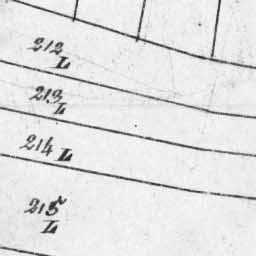 212
L
213
L
214 L
215
L